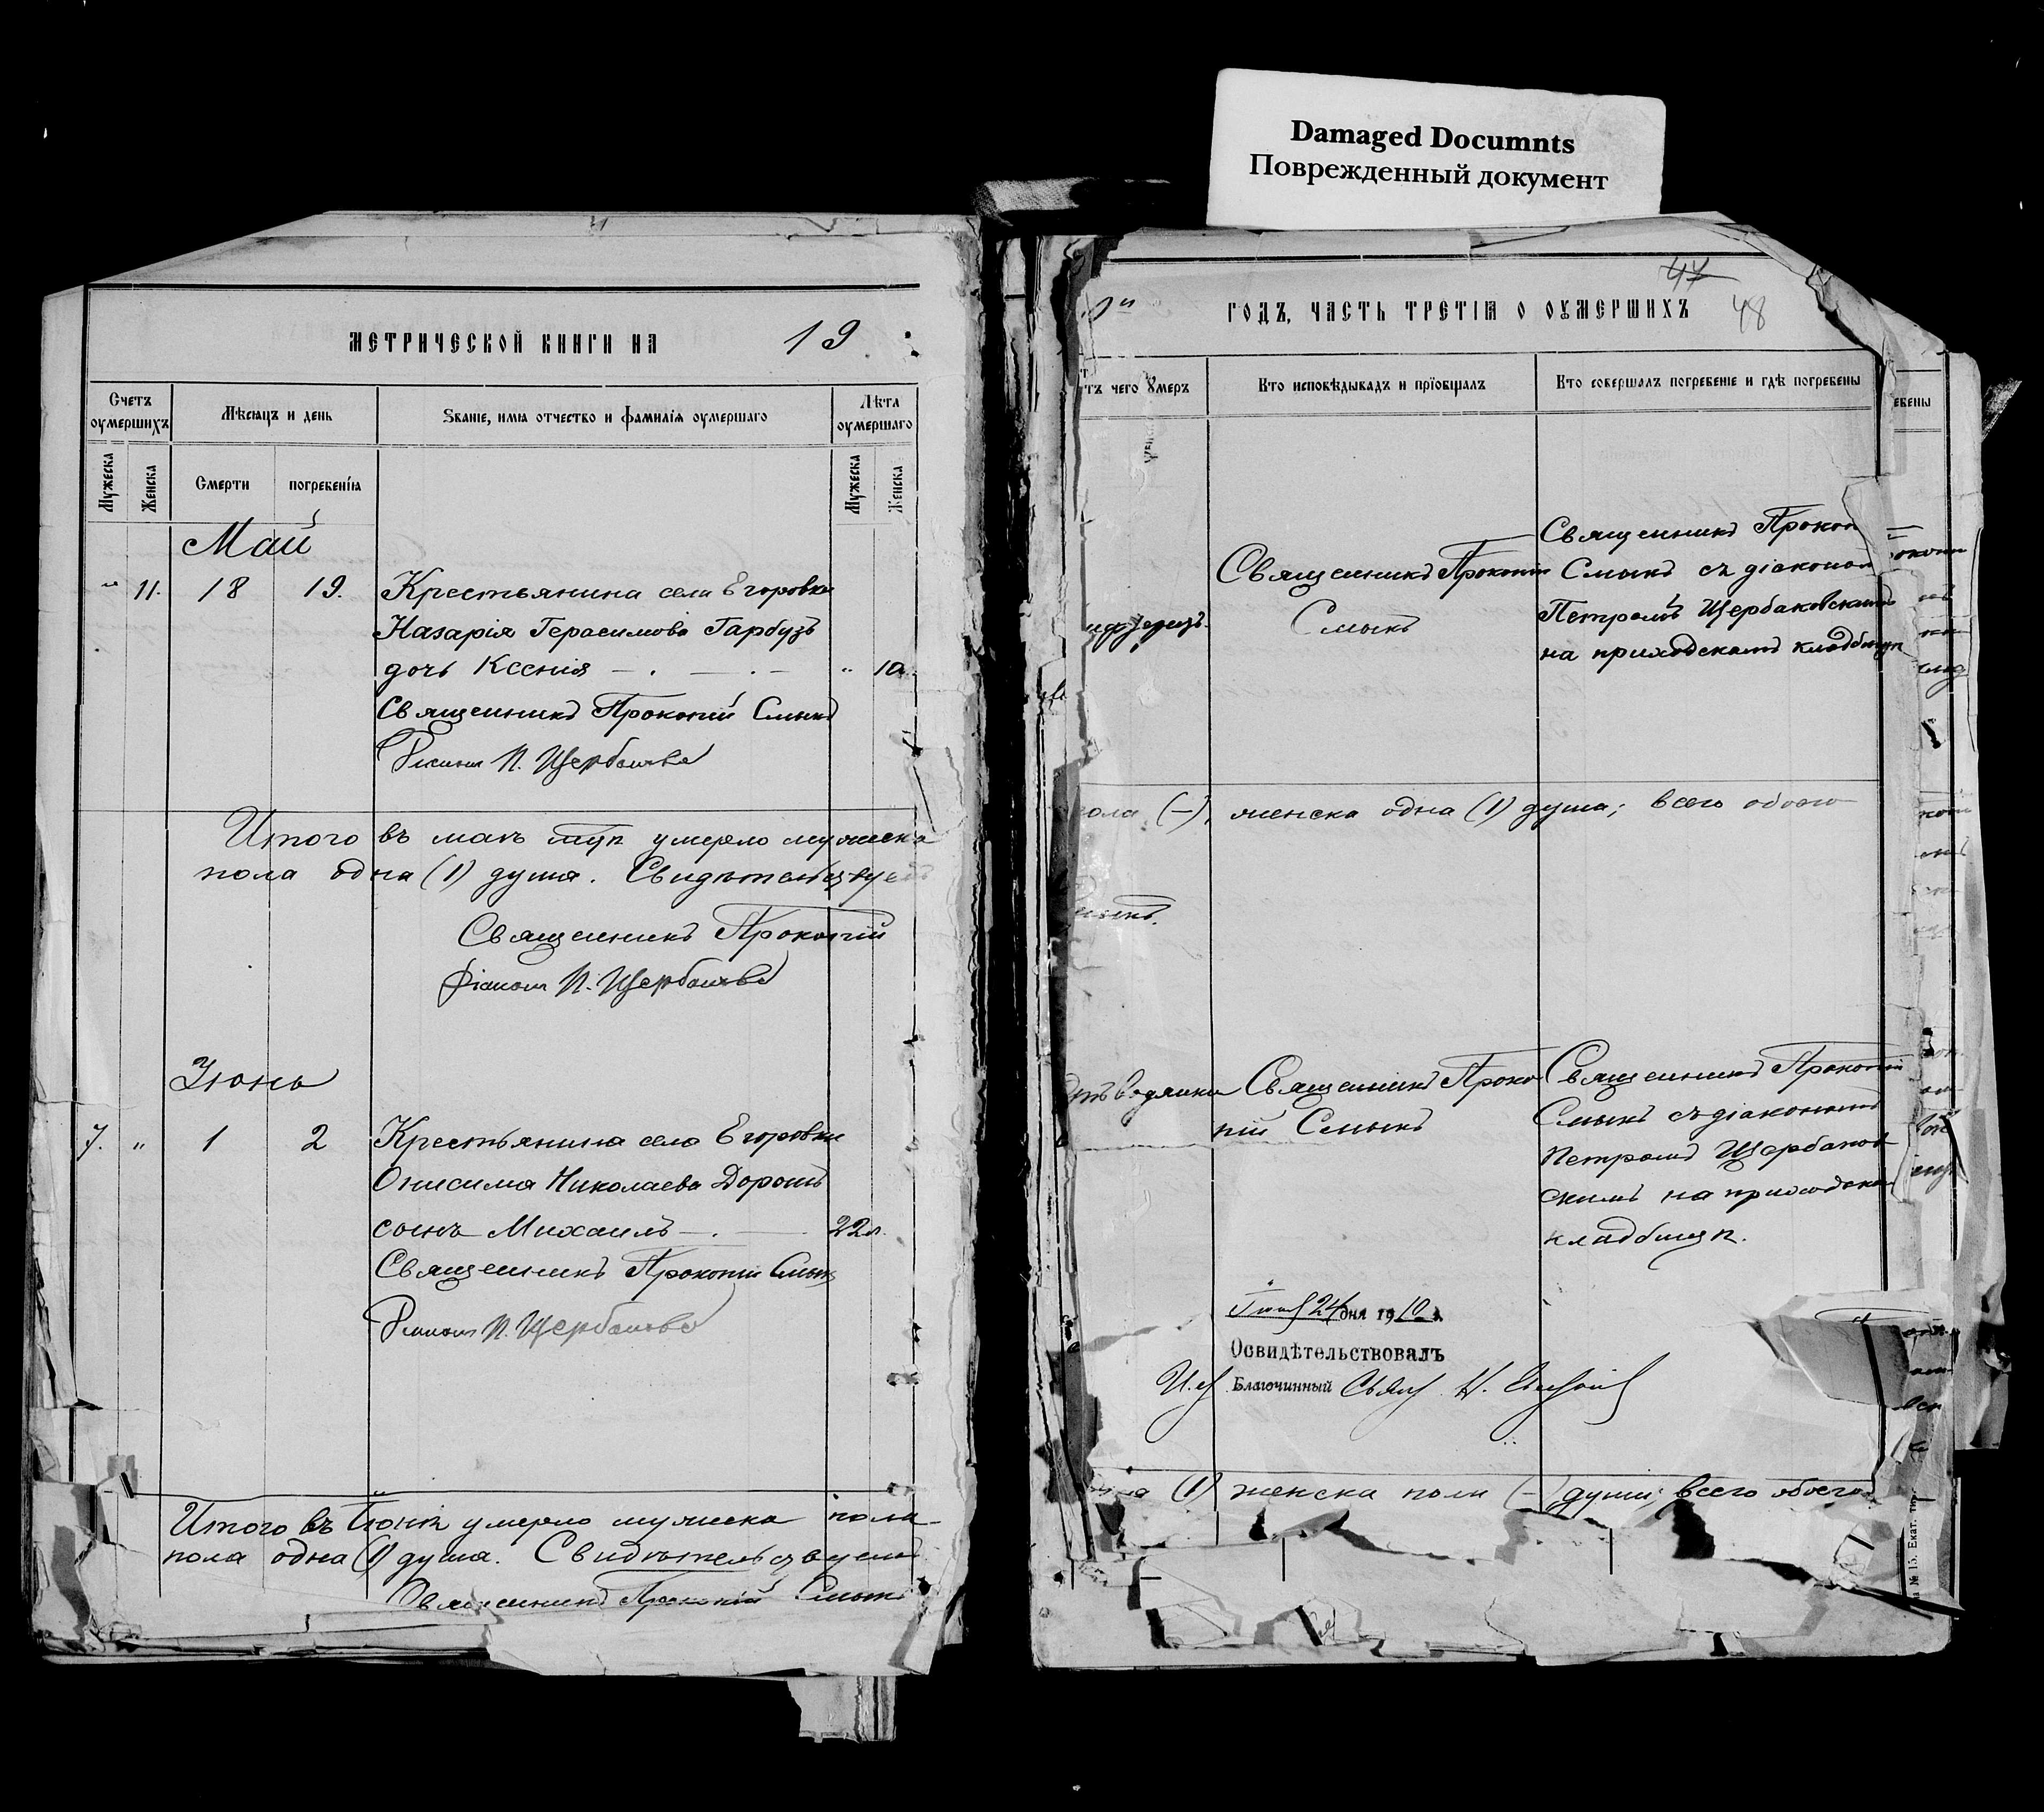 Damaged Documnts
Поврежденный документ
МЕТРИЧЕСКОЙ КНИГИ НА 19
Счетъ оумершихъ
Мѣсяцъ и день
Званіе, имя отчество и фамилія оумершаго
Лѣта оумершаго
Мужеска
Женска
Смерти
погребенія
Мужеска
Женска
Май
" 11. 18 19. Крестьянина села Егоровки
Назарія Герасимова Гарбузъ
дочь Ксенія " 10
Священникъ Прокопій Смыкъ
Діаконъ П. Щербаковс
Итого въ маѣ умерло мужеска
пола одна (1) душа. Свидѣтельствуемъ
Священникъ Прокопій
Діаконъ П. Щербаковс
Іюнь
7. " 1 2 Крестьянина села Егоровки
Онисима Николаева Дорошъ
сынъ Михаилъ 22л.
Священникъ Прокопій Смыкъ
Діаконъ П. Щербаковс
Итого въ Іюнѣ умерло мужеска пола
пола одна (1) душа. Свидѣтельствуемъ
Священникъ Прокопій Смыкъ
47
ГОДЪ, ЧАСТЬ ТРЕТІЯ О ОУМЕРШИХЪ 48
тъ чего умеръ
Кто исповѣдывалъ и пріобщалъ
Кто совершалъ погребеніе и гдѣ погребены
Священникъ Прокопій
Смыкъ
Священникъ Прокоп
Смыкъ съ діакономъ
Петромъ Щербаковскимъ
на приходскомъ кладбищѣ
пола (-), женска одна (1) душа; всего обоего
Смыкъ.
отъ водянки
Священникъ Проко
пій Смыкъ
Священникъ Прокопій
Смыкъ съ діакономъ
Петромъ Щербаков
скимъ на приходском
кладбищѣ.
24 дня 1910 г.
Освидѣтельствовалъ
И.д. Благочинный Свящ. Н.
(1) женска пола (-) души; всего обоего
ебены
№ 15. Екат. тип.